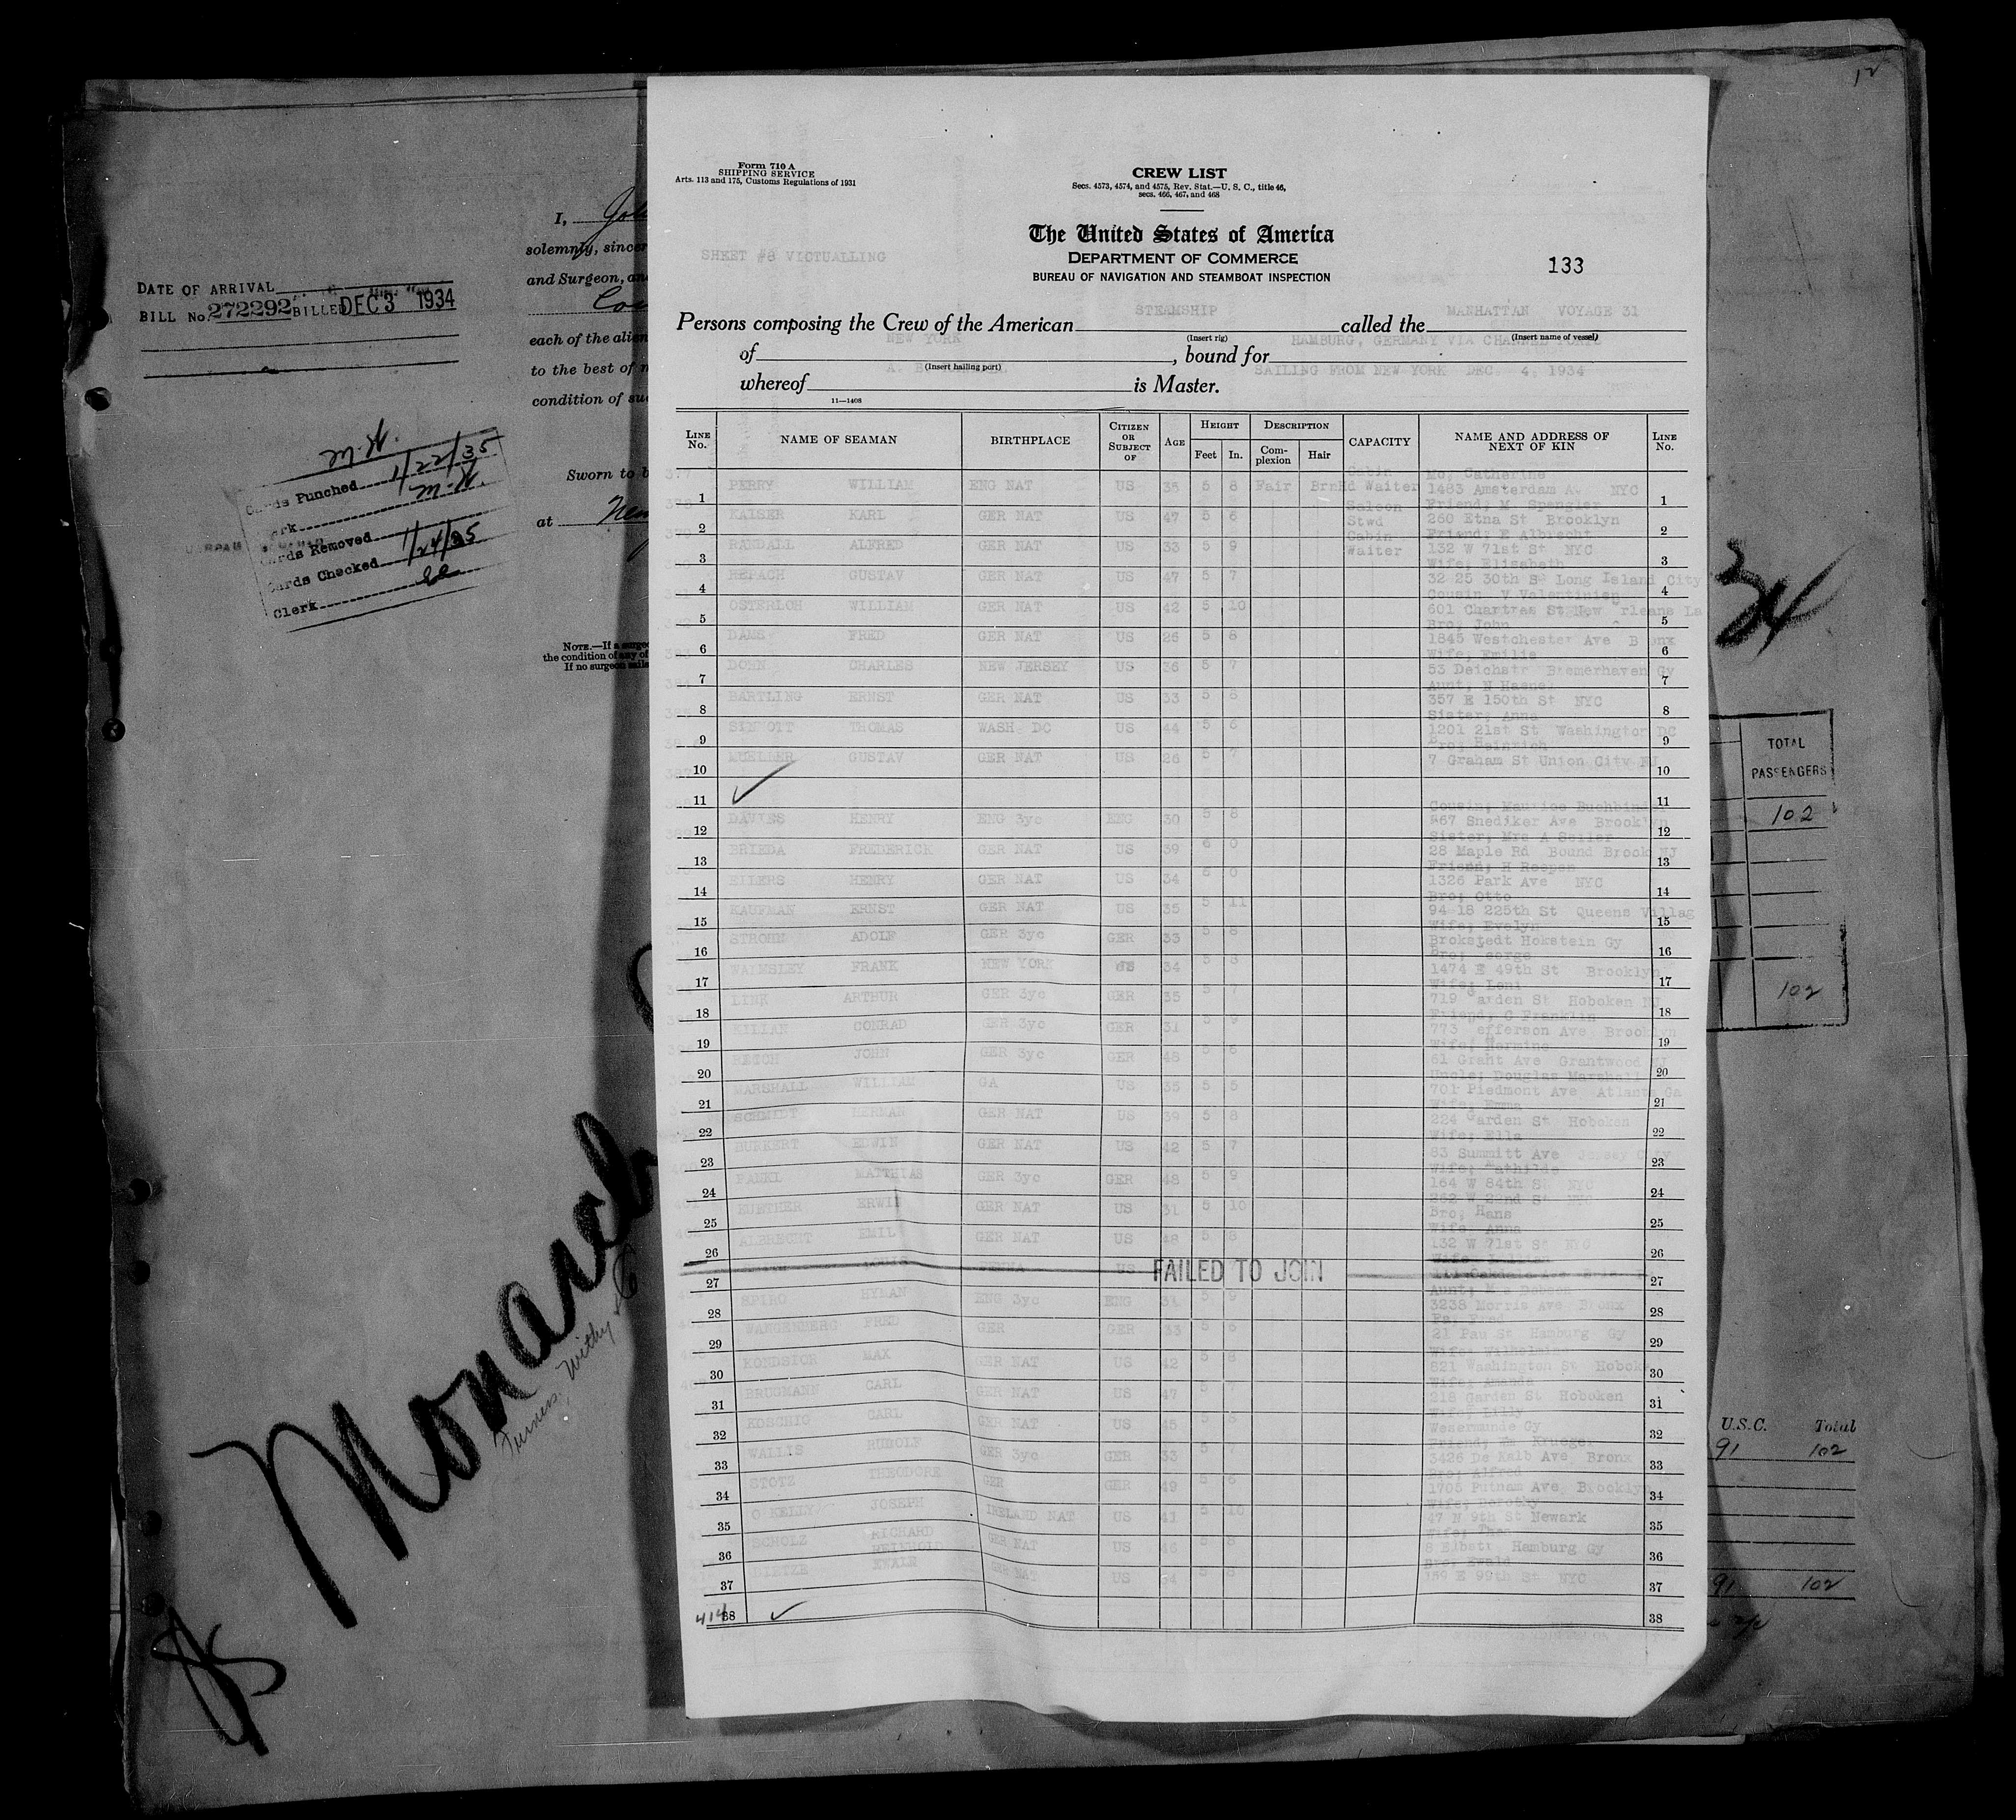 12
DATE OF ARRIVAL
BILL No. 272292 BILLED DEC 3 1934
M.K.
Cards Punched 1/22/35
Clerk M.K.
Cards Removed
Cards Checked 1/24/35
Clerk
I,
solemnly, sincer
and Surgeon, an
each of the alien
to the best of
condition of su
Sworn to b
at New
NOTE.—If a surge
the condition of any of
If no surgeon sails
Monarch
Furness, Withy
Form 710 A
SHIPPING SERVICE
Arts. 113 and 175, Customs Regulations of 1931
CREW LIST
Secs. 4573, 4574, and 4575, Rev. Stat.—U. S. C., title 46,
secs. 466, 467, and 468
The United States of America
DEPARTMENT OF COMMERCE
BUREAU OF NAVIGATION AND STEAMBOAT INSPECTION
SHEET #8 VICTUALLING
133
Persons composing the Crew of the American STEAMSHIP called the MANHATTAN VOYAGE 31
(Insert rig) (Insert name of vessel)
of NEW YORK, bound for HAMBURG, GERMANY VIA CHANNEL PORTS
(Insert hailing port)
whereof A. is Master. SAILING FROM NEW YORK DEC. 4, 1934
11—1408
LINE No. NAME OF SEAMAN BIRTHPLACE CITIZEN OR SUBJECT OF AGE HEIGHT Feet In. DESCRIPTION Complexion Hair CAPACITY NAME AND ADDRESS OF NEXT OF KIN LINE No.
1 PERRY WILLIAM ENG NAT US 35 5 8 Fair Brn Cabin Hd Waiter Mo; Catherine 1483 Amsterdam Av NYC 1
2 KAISER KARL GER NAT US 47 5 6 Saloon Stwd Friend; M Spengler 260 Etna St Brooklyn 2
3 RANDALL ALFRED GER NAT US 33 5 9 Cabin Waiter Friend; E Albrecht 132 W 71st St NYC 3
4 REPACH GUSTAV GER NAT US 47 5 7 Wife; Elisabeth 32 25 30th St Long Island City 4
5 OSTERLOH WILLIAM GER NAT US 42 5 10 Cousin V Valentinien 601 Chartres St New rleans La 5
6 DAME FRED GER NAT US 26 5 8 Bro; John 1845 Westchester Ave Bronx 6
7 DOHN CHARLES NEW JERSEY US 36 5 7 Wife; Emilie 53 Deichstr Bremerhaven Gy 7
8 BARTLING ERNST GER NAT US 33 5 8 Aunt; N 357 E 150th St NYC 8
9 SINNOTT THOMAS WASH DC US 44 5 6 Sister; Anna 1201 21st St Washington DC 9
10 MUELLER GUSTAV GER NAT US 26 5 7 Bro; Heinrich 7 Graham St Union City NJ 10
11 11
12 DAVIES HENRY ENG 3yc ENG 30 5 8 Cousin; Maurice 567 Snediker Ave Brooklyn 12
13 BRIEDA FREDERICK GER NAT US 39 6 0 Sister; Mrs A Seiler 28 Maple Rd Bound Brook NJ 13
14 EILERS HENRY GER NAT US 34 6 0 Friend; H Roepen 1326 Park Ave NYC 14
15 KAUFMAN ERNST GER NAT US 35 5 11 Bro; Otto 94 18 225th St Queens Villag 15
16 STROHM ADOLF GER 3yc GER 33 5 8 Wife; Evelyn Brokstedt Hokstein Gy 16
17 WALMSLEY FRANK NEW YORK US 34 5 8 Bro; eorge 1474 E 49th St Brooklyn 17
18 LINK ARTHUR GER 3yc GER 35 5 7 Wife; Leni 719 arden St Hoboken NJ 18
19 KILIAN CONRAD GER 3yc GER 31 5 9 Friend; C Franklin 773 efferson Ave Brooklyn 19
20 RETCH JOHN GER 3yc GER 48 5 6 Wife; Hermine 61 Grant Ave Grantwood NJ 20
21 MARSHALL WILLIAM GA US 35 5 5 Uncle; Douglas Marshall 701 Piedmont Ave Atlanta Ga 21
22 SCHMIDT HERMAN GER NAT US 39 5 8 Wife; Emma 224 Garden St Hoboken 22
23 BURKERT EDWIN GER NAT US 42 5 7 Wife; Ella 83 Summitt Ave Jersey City 23
24 PANKL MATTHIAS GER 3yc GER 48 5 9 Wife; Mathilde 164 W 84th St NYC 24
25 EURTHER ERWIN GER NAT US 31 5 10 262 W 22nd St NYC Bro; Hans 25
26 ALBRECHT EMIL GER NAT US 48 5 8 Wife; Anna 132 W 71st St NYC 26
27 LOUIS US FAILED TO JOIN Wife; Lillian 27
28 SPIRO HYMAN ENG 3yc ENG 31 5 9 Aunt; 3238 Morris Ave Bronx 28
29 WANGENBERG FRED GER GER 33 5 6 Fa; Fred 21 Pau St Hamburg Gy 29
30 KONDSIOR MAX GER NAT US 42 5 8 Wife; Wilhelmine 821 Washington St Hoboken 30
31 BRUGMANN CARL GER NAT US 47 5 7 Wife; Amanda 218 Garden St Hoboken 31
32 KOSCHIG CARL GER NAT US 45 5 8 Wife; Lilly Wesermunde Gy 32
33 WALLIS RUDOLF GER 3yc GER 33 5 7 Friend; Krueger 3426 De Kalb Ave Bronx 33
34 STOTZ THEODORE GER GER 49 5 6 Bro; Alfred 1705 Putnam Ave Brooklyn 34
35 O KELLY JOSEPH IRELAND NAT US 41 5 10 Wife; Dorothy 47 N 9th St Newark 35
36 SCHOLZ RICHARD REINHOLD GER NAT US 46 5 8 Wife; 8 Elbstr Hamburg Gy 36
37 DIETZE EWALD GER NAT US 34 5 8 Bro; Ewald 159 E 99th St NYC 37
414 38 38
TOTAL PASSENGERS
102
102
U.S.C. Total
91 102
91 102